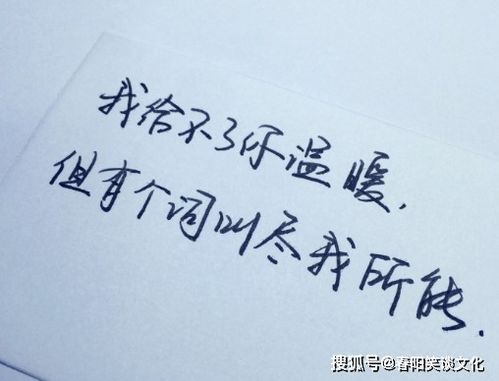 我给不了你温暖，
但有个词叫尽我所能.
搜狐号@春阳笑谈文化